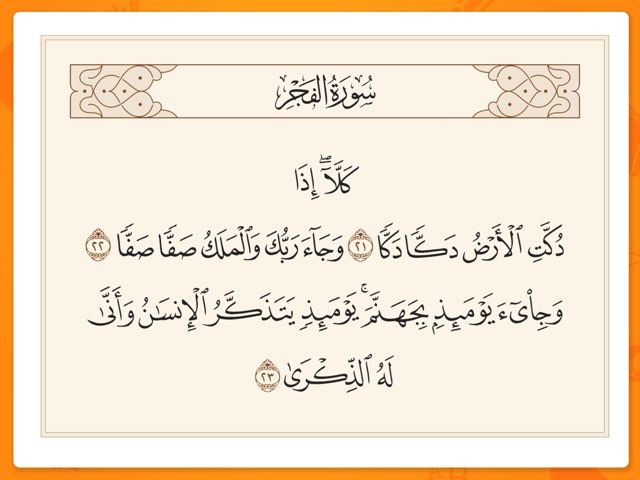 سُورَةُ الفَجْرِ
كَلَّآۖ إِذَا
دُكَّتِ ٱلْأَرْضُ دَكًّا دَكًّا ٢١ وَجَآءَ رَبُّكَ وَٱلْمَلَكُ صَفًّا صَفًّا ٢٢
وَجِا۟ىٓءَ يَوْمَئِذٍۭ بِجَهَنَّمَۚ يَوْمَئِذٍ يَتَذَكَّرُ ٱلْإِنسَٰنُ وَأَنَّىٰ
لَهُ ٱلذِّكْرَىٰ ٢٣